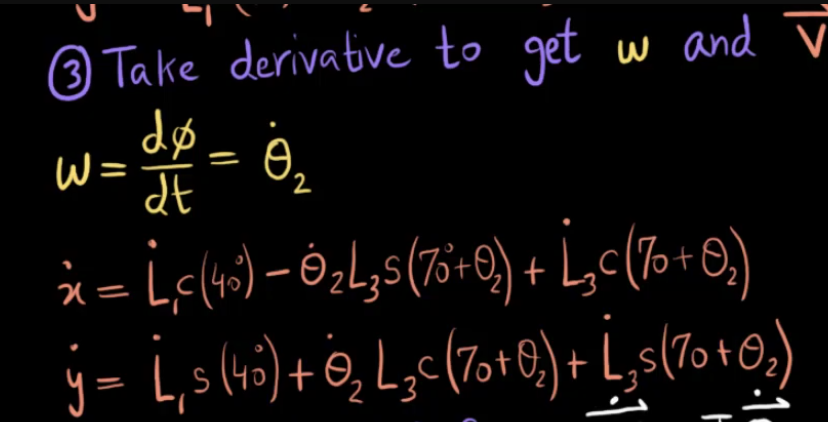 ③ Take derivative to get w and V
w = dϕ/dt = θ̇₂
ẋ = L̇₁c(40°) − θ̇₂L₃s(70°+θ₂) + L̇₃c(70+θ₂)
ẏ = L̇₁s(40°) + θ̇₂L₃c(70+θ₂) + L̇₃s(70+θ₂)